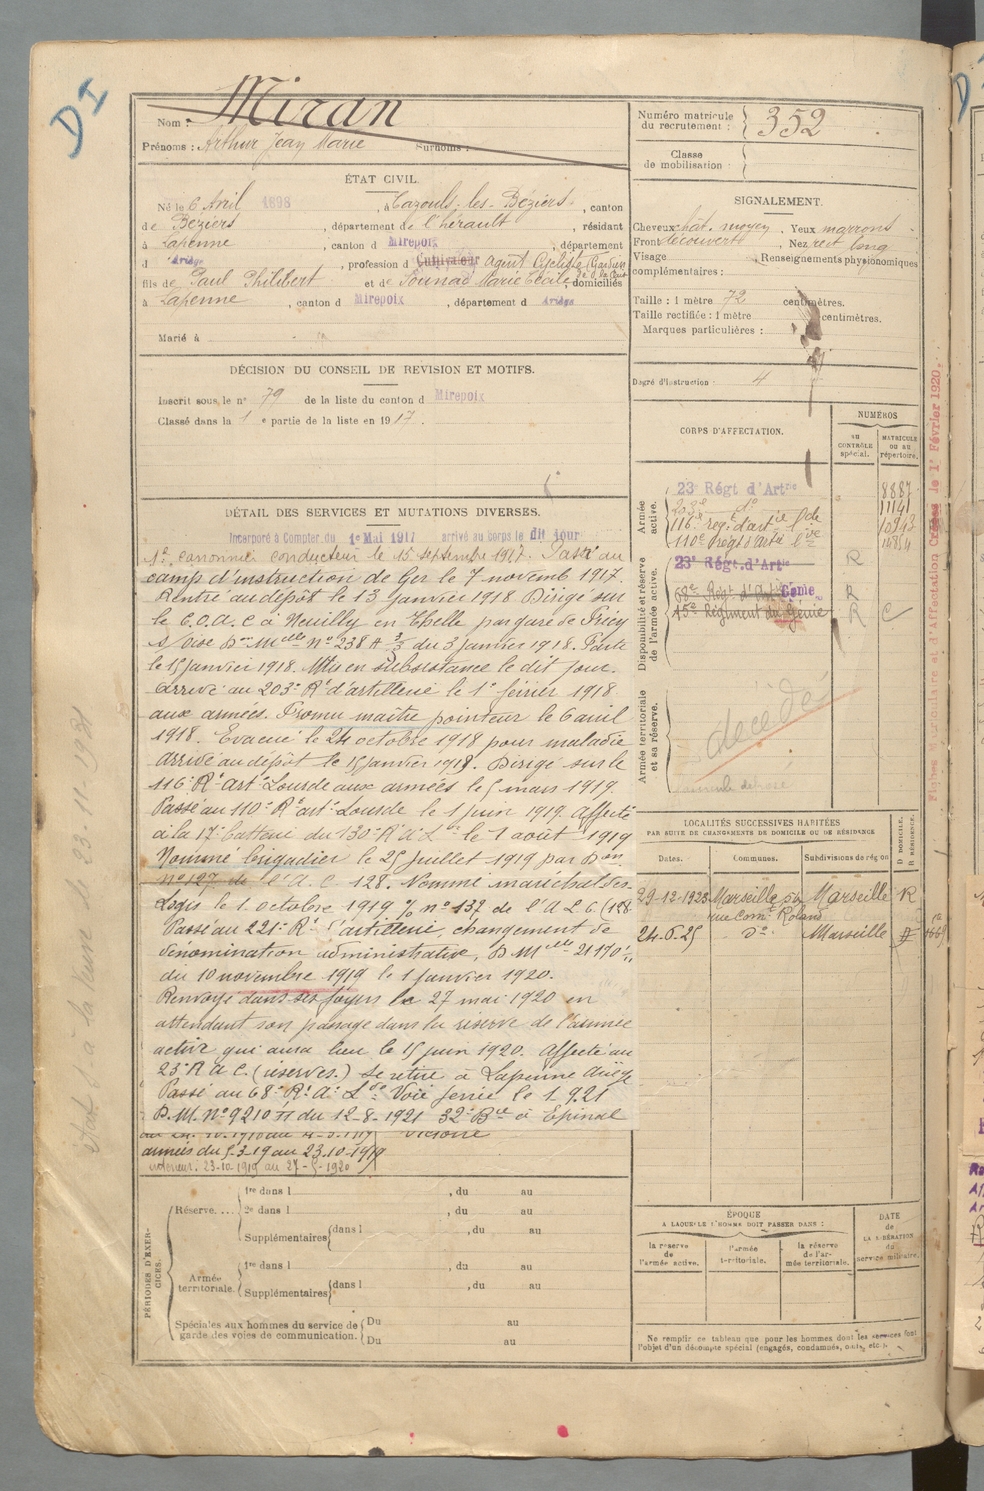 DI
Nom : Miran
Prénoms : Arthur Jean Marie Surnoms :
Numéro matricule du recrutement : 352
Classe de mobilisation :
ÉTAT CIVIL.
Né le 6 Avril 1898, à Cazouls-les-Béziers, canton
de Béziers, département de l'hérault, résidant
à Lapenne, canton d Mirepoix, département
d Ariège, profession d Cultivateur agent cycliste (Gardien
fils de Paul Philibert et de Marie Cécile, domiciliés
à Lapenne, canton d Mirepoix, département d Ariège
Marié à
DÉCISION DU CONSEIL DE REVISION ET MOTIFS.
Inscrit sous le n° 79 de la liste du canton d Mirepoix
Classé dans la 1 e partie de la liste en 1917.
DÉTAIL DES SERVICES ET MUTATIONS DIVERSES.
Incorporé à Compter du 1e Mai 1917 arrivé au Corps le dit jour
canonnier conducteur le 15 septembre 1917. Passé au
camp d'instruction de Ger le 7 novemb 1917.
Rentré au dépôt le 13 janvier 1918 Dirigé sur
le C.O.A.C à Neuilly en Thelle par gare de Précy
Don Melle N° 238 A 3/3 du 3 janvier 1918. Parti
le 15 janvier 1918. Mis en subsistance le dit jour.
Arrivé au 203e Rt d'artillerie le 1e février 1918
aux armées. Promu maître pointeur le 6 avril
1918. Evacué le 24 octobre 1918 pour maladie
arrivé au dépôt le 15 janvier 1919. Dirigé sur le
116e Rt art Lourde aux armées le 5 mars 1919.
Passé au 110e Rt art Lourde le 1 juin 1919. Affecté
à la 17e batterie du 130e R a Lde le 1 août 1919
Nommé brigadier le 25 juillet 1919 par Don
n° 127 de l'A.C. 128. Nommé maréchal des
Logis le 1 octobre 1919 % n° 137 de l'A L G (128
Passé au 221e Rt d'artillerie, changement de
dénomination administrative, D Melle 21170 1/11
du 10 novembre 1919 le 1 janvier 1920.
Renvoyé dans ses foyers le 27 mai 1920 en
attendant son passage dans la réserve de l'armée
active qui aura lieu le 15 juin 1920. Affecté au
23e R A C. (réserves.) Se retire à Lapenne Ariège
Passé au 68e Rt At Lde Voie ferrée le 1.9.21
D.M. N° 9210 du 12-8-1921 32e Bie à Epinal
Victoire
armées du 5-3-19 au 23.10-1919
intérieur. 23-10-1919 au 27-5-1920
PÉRIODES D'EXERCICES.
Réserve....
1re dans l , du au
2e dans l , du au
Supplémentaires dans l , du au
Armée territoriale.
1re dans l , du au
Supplémentaires dans l , du au
Spéciales aux hommes du service de garde des voies de communication.
Du au
Du au
SIGNALEMENT.
Cheveux chât. moyen. Yeux marrons
Front découverte, Nez rect long
Visage Renseignements physionomiques
complémentaires :
Taille : 1 mètre 72 centimètres.
Taille rectifiée : 1 mètre centimètres.
Marques particulières :
Degré d'instruction : 4
CORPS D'AFFECTATION.
NUMÉROS
AU CONTRÔLE spécial.
MATRICULE ou au répertoire.
Armée active.
23e Régt d'Artie 8887
203e do 11141
116e reg d'artie lde 10943
110e Régt d'artie lde 14854
Disponibilité et réserve de l'armée active.
23e Régt d'Artie R
68e Régt d'Artie Génie R
15e Régiment du Génie R C
Armée territoriale et sa réserve.
décédé
LOCALITÉS SUCCESSIVES HABITÉES
PAR SUITE DE CHANGEMENTS DE DOMICILE OU DE RÉSIDENCE
Dates. Communes. Subdivisions de région D DOMICILE. R RÉSIDENCE.
29-12-1923 Marseille Marseille R
rue Comt Roland
24.6.25 do Marseille
ÉPOQUE
A LAQUELLE L'HOMME DOIT PASSER DANS :
la réserve de l'armée active.
l'armée territoriale.
la réserve de l'armée territoriale.
DATE de LA LIBÉRATION du service militaire.
Ne remplir ce tableau que pour les hommes dont les services font
l'objet d'un décompte spécial (engagés, condamnés, omis, etc.).